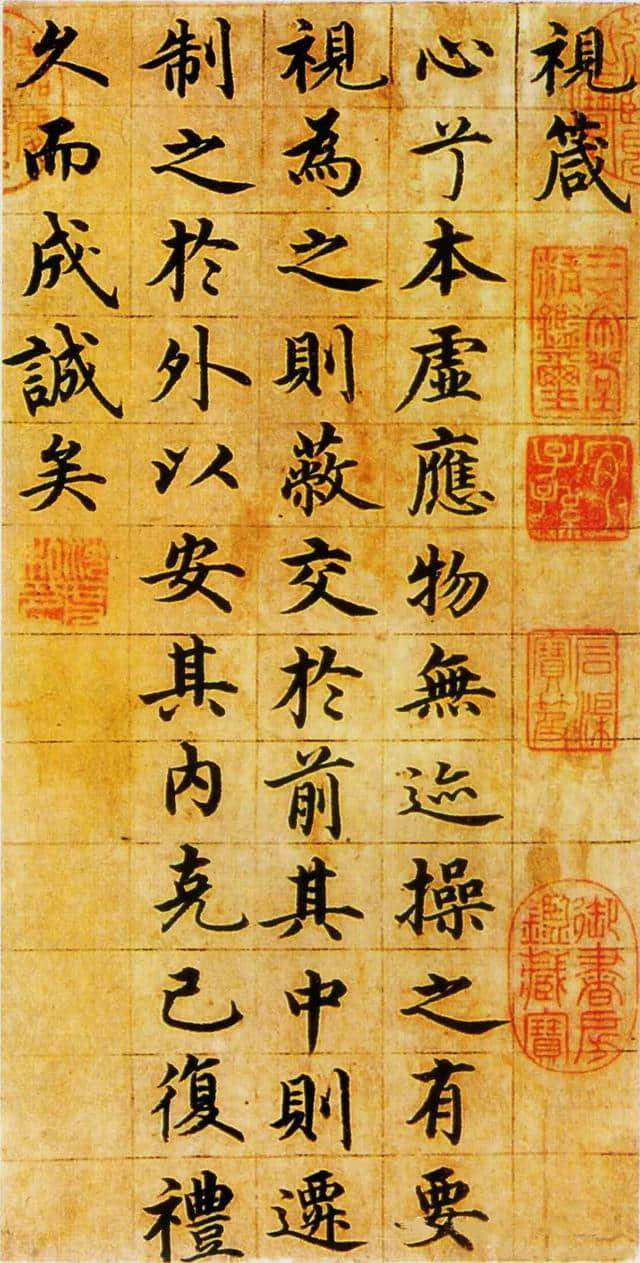 視箴
三希堂精鑑璽
宜子孫
石渠寶笈
御書房鑑藏寶
心兮本虛應物無迹操之有要
視為之則蔽交於前其中則遷
制之於外以安其內克己復禮
久而成誠矣